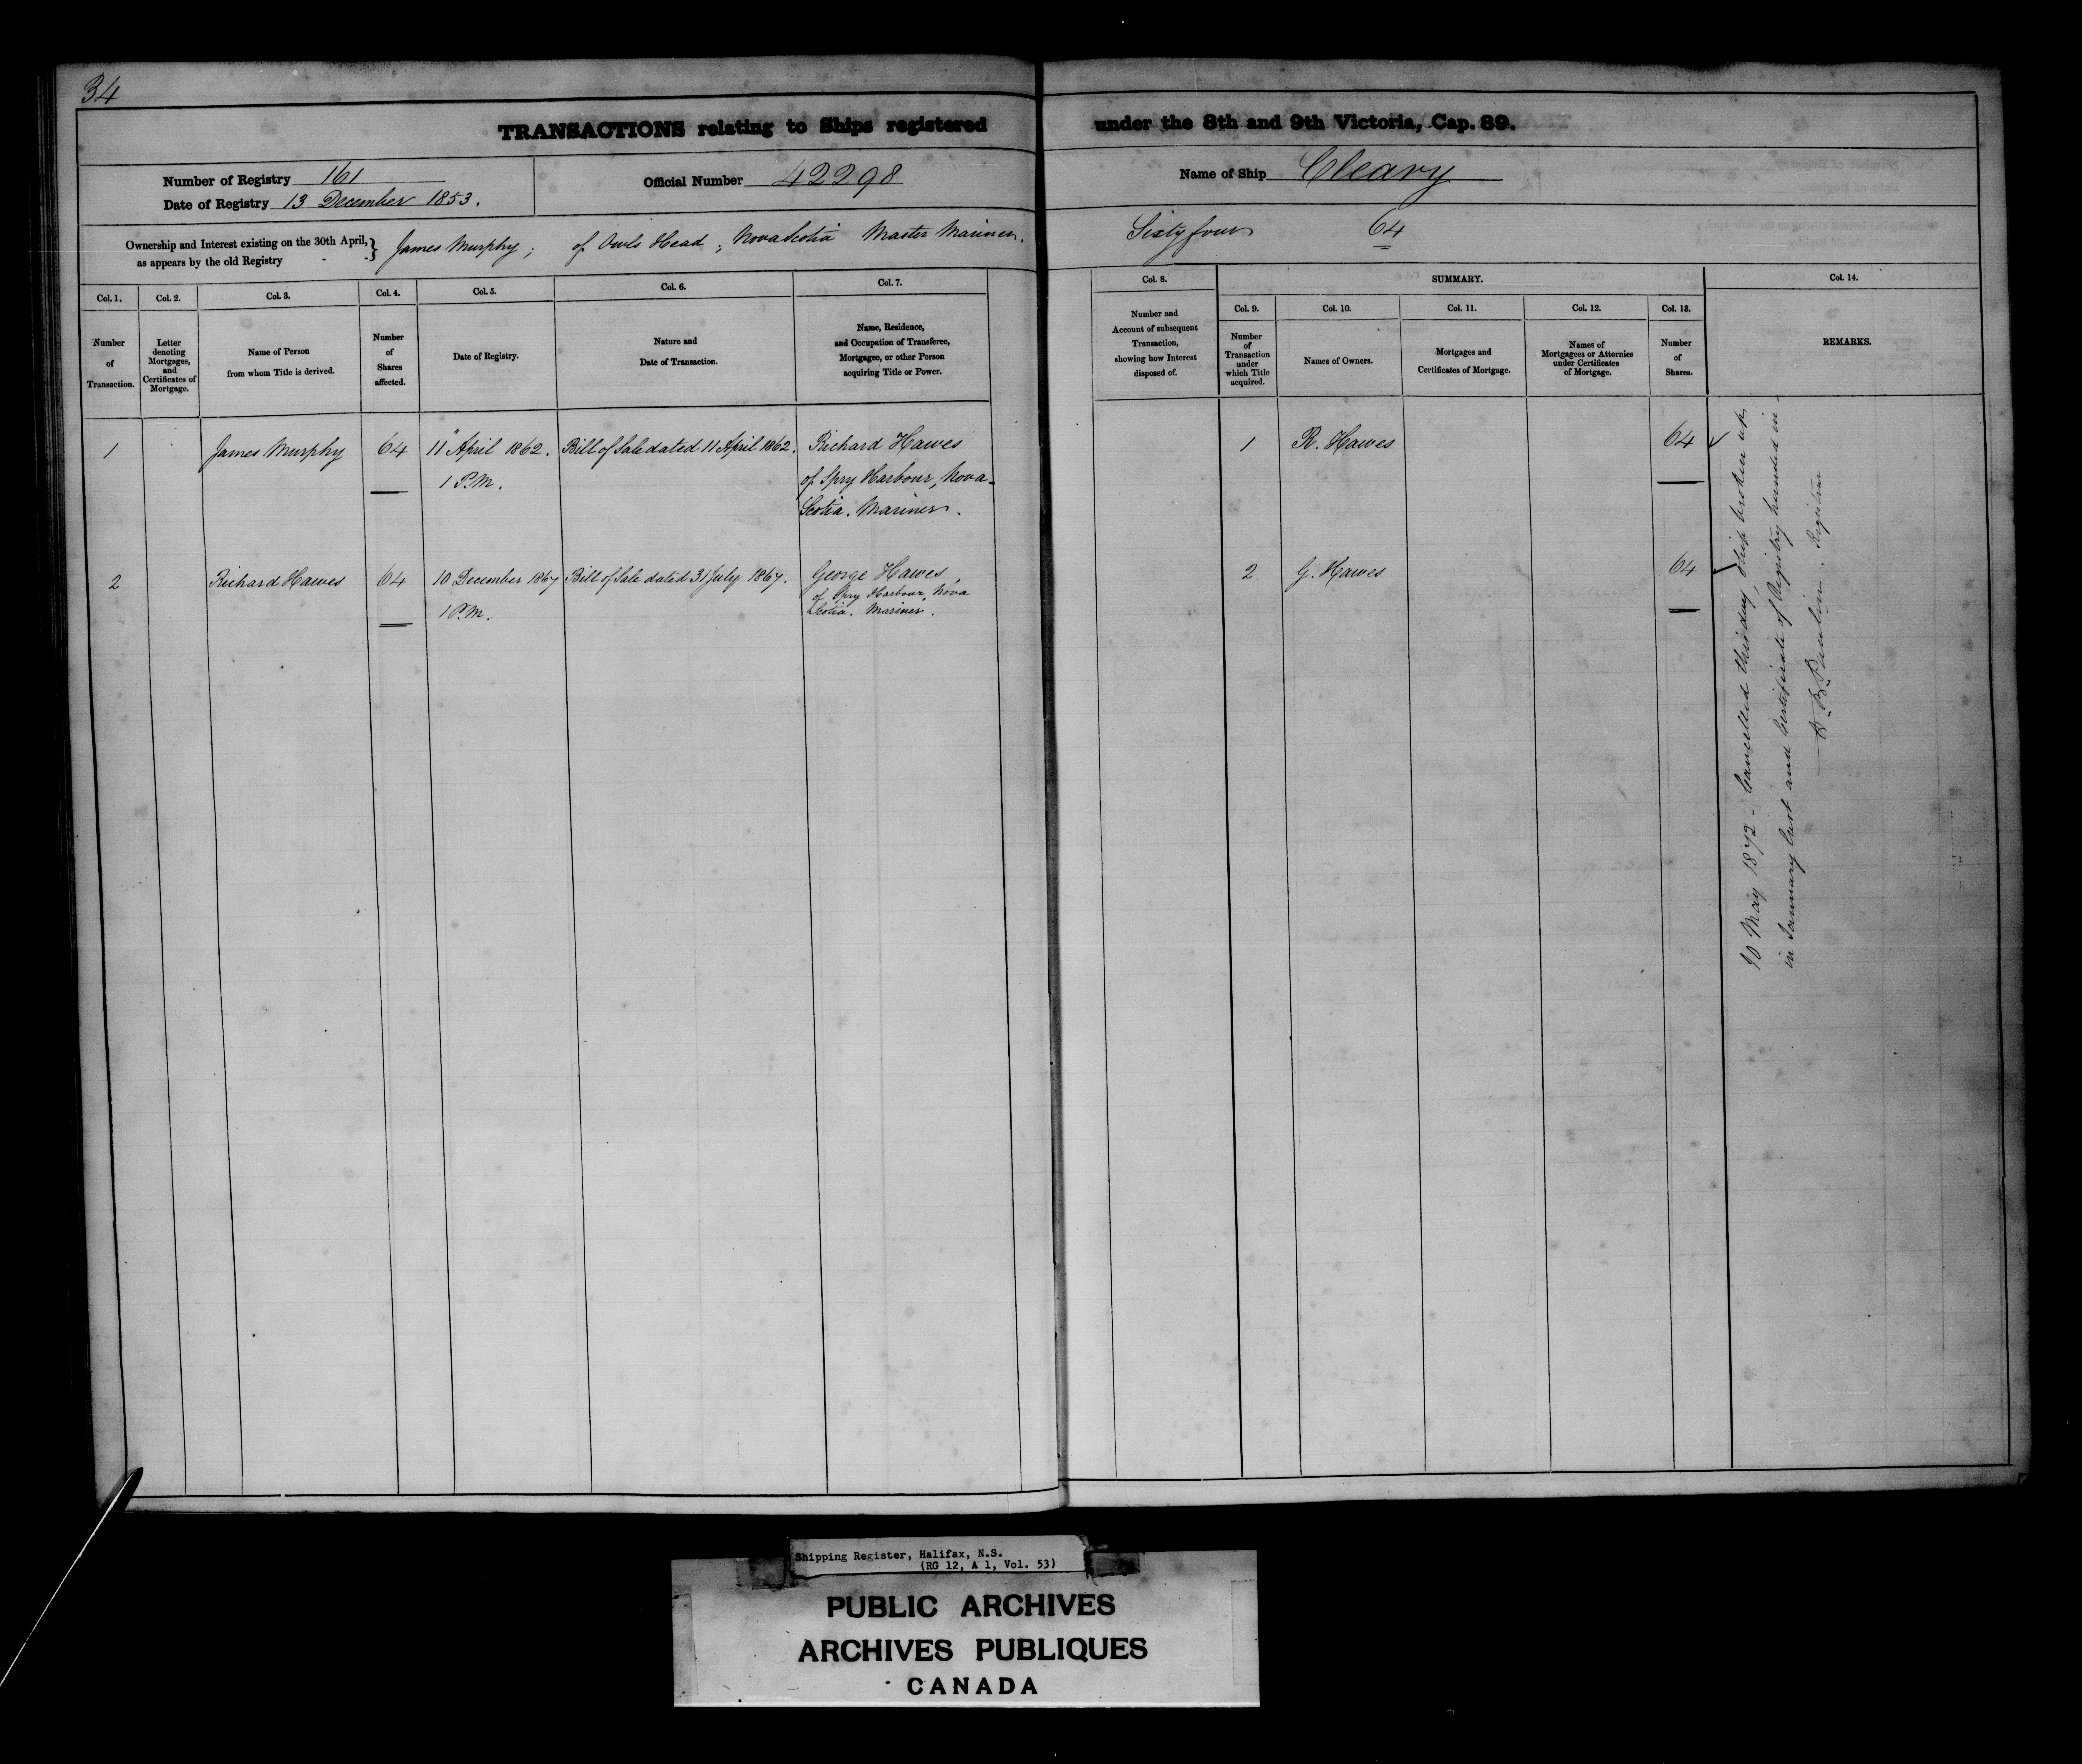 34
TRANSACTIONS relating to Ships registered under the 8th and 9th Victoria, Cap. 89.
Number of Registry 161
Date of Registry 13 December 1853.
Official Number 42298
Name of Ship Cleary
Ownership and Interest existing on the 30th April, as appears by the old Registry } James Murphy ; of Owls Head ; Nova Scotia Master Mariner. Sixty four 64
Col. 1. Col. 2. Col. 3. Col. 4. Col. 5. Col. 6. Col. 7. Col. 8. SUMMARY. Col. 14.
Col. 9. Col. 10. Col. 11. Col. 12. Col. 13.
Number of Transaction.
Letter denoting Mortgages, and Certificates of Mortgage.
Name of Person from whom Title is derived.
Number of Shares affected.
Date of Registry.
Nature and Date of Transaction.
Name, Residence, and Occupation of Transferee, Mortgagee, or other Person acquiring Title or Power.
Number and Account of subsequent Transaction, showing how Interest disposed of.
Number of Transaction under which Title acquired.
Names of Owners.
Mortgages and Certificates of Mortgage.
Names of Mortgagees or Attornies under Certificates of Mortgage.
Number of Shares.
REMARKS.
1 James Murphy 64 11" April 1862. Bill of Sale dated 11 April 1862. Richard Hawes 1 R. Hawes 64
1 P.M. of Spry Harbour, Nova-
Scotia. Mariner.
2 Richard Hawes 64 10 December 1867 Bill of Sale dated 31 July 1867. George Hawes, 2 G. Hawes 64
1 P.M. of Spry Harbour, Nova
Scotia. Mariner.
10 May 1872 - Cancelled this day, Ship broken up
in January last and Certificate of Registry handed in -
Registrar
Shipping Register, Halifax, N.S.
(RG 12, A 1, Vol. 53)
PUBLIC ARCHIVES
ARCHIVES PUBLIQUES
CANADA